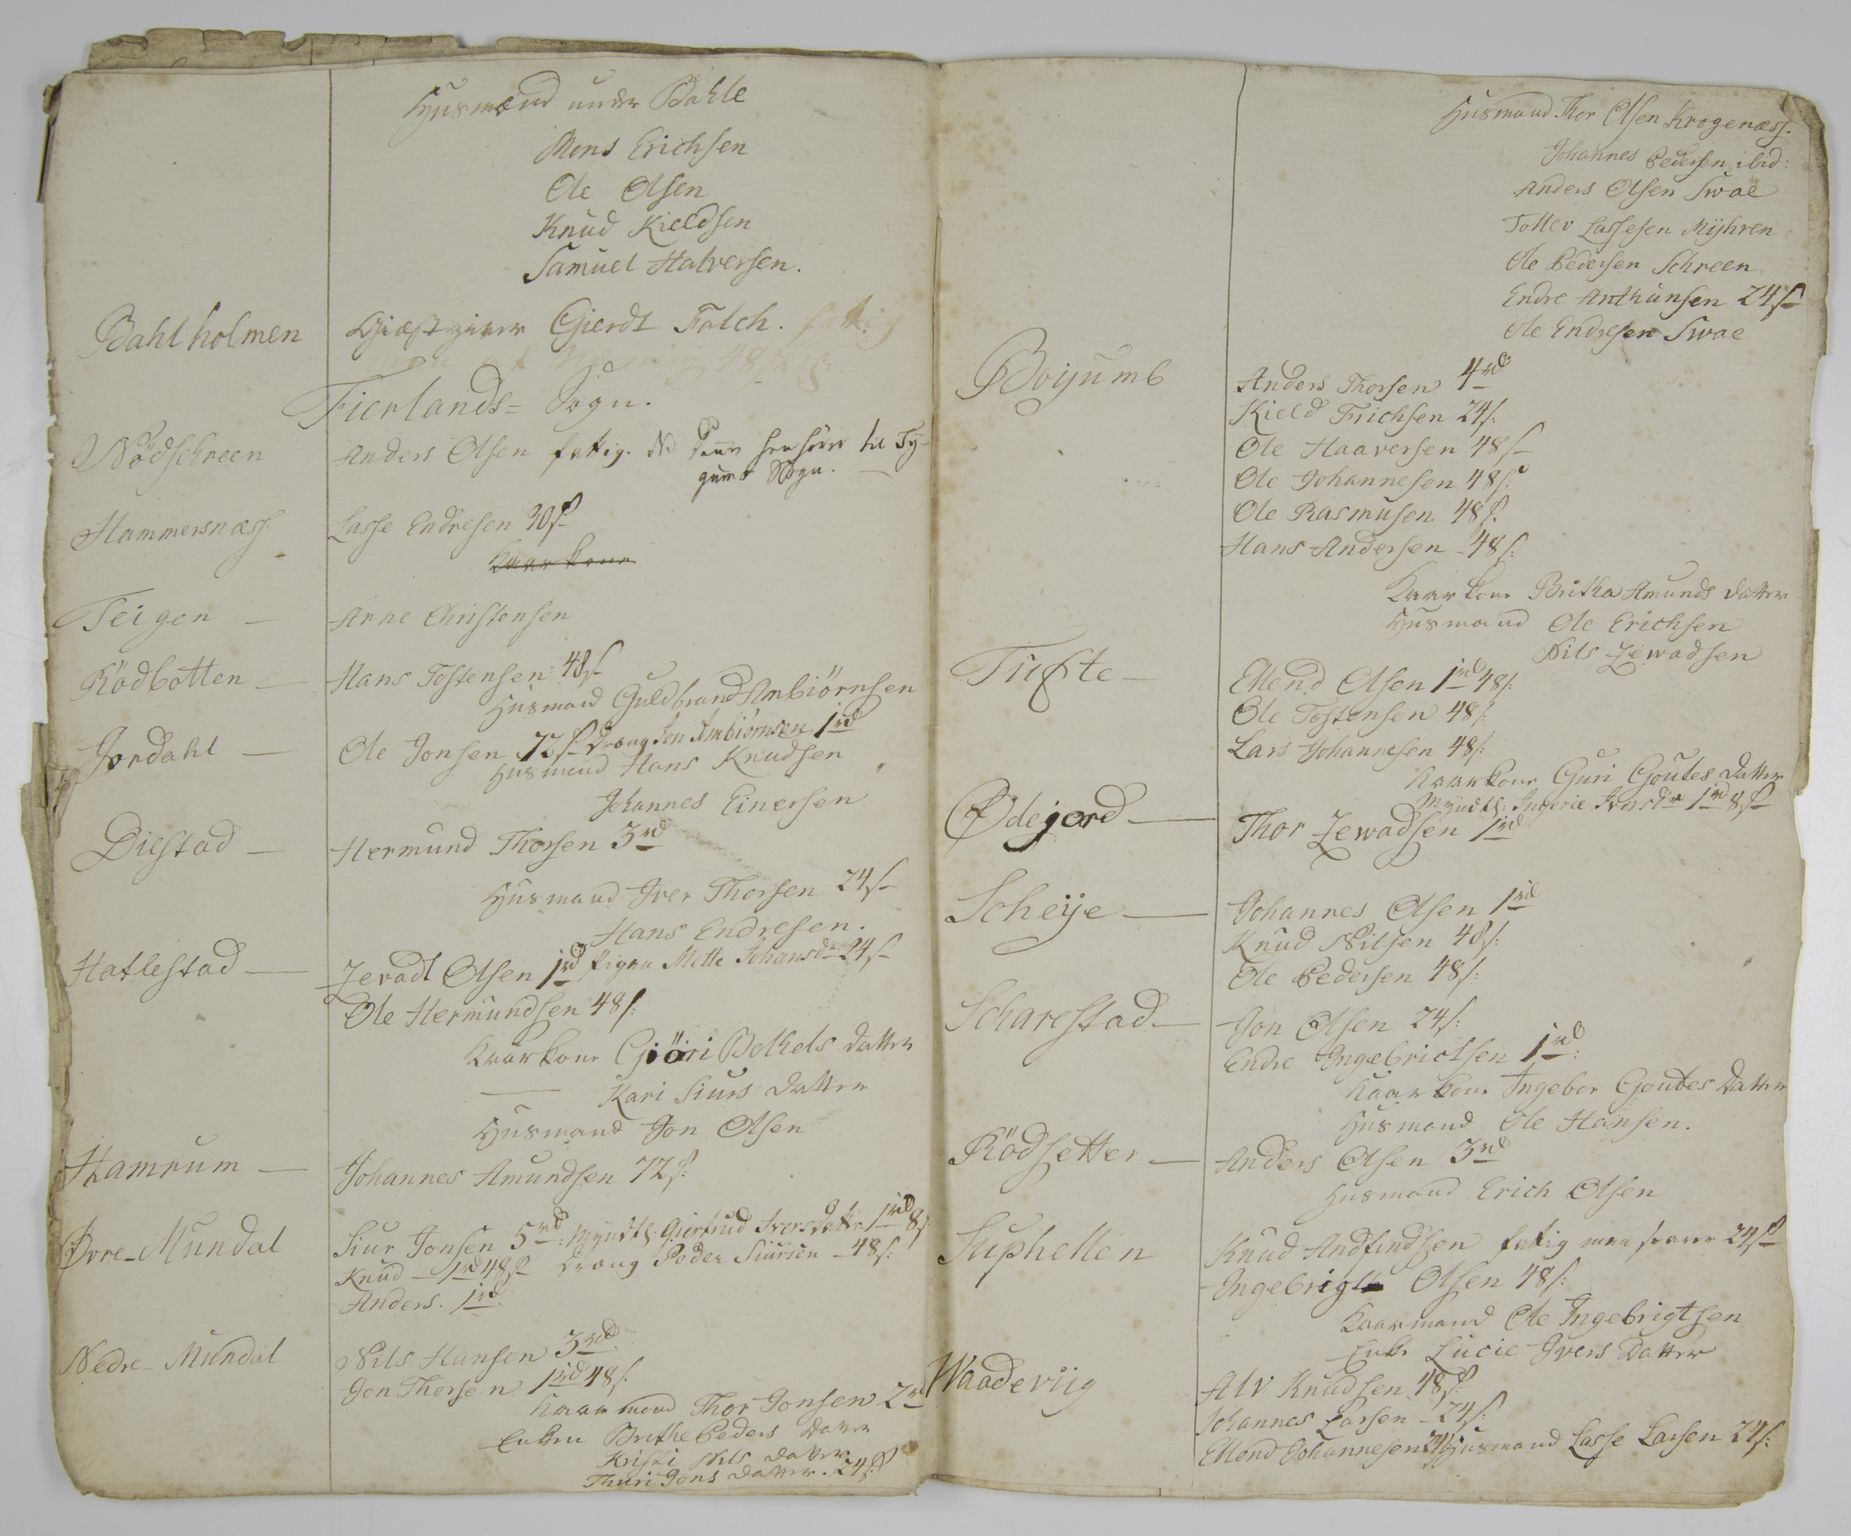 Husmænd under Bahle
Mons Erichsen
Ole Olsen
Knud Kieldsen
Samuel Halversen.
Bahlholmen Giæstgiver Gierdt Falch. fattig
48
Fierlands= Sogn.
Nødschreen Anders Olsen fattig. NB denne henhører til Ty-
gums Sogn.
Hammersnæss Lasse Endresen 30 s
Kaarkone
Teigen — Arne Christensen
Rödbotten — Hans Tostensen 48 s
Husmand Guldbrand Anbiørnsen
Jordahl — Ole Jonsen 72 s Dræng Jon Ambiörnsen 1 rd
Husmænd Hans Knudsen
Johannes Einersen
Diestad — Hermund Thorsen 3 rd
Husmand Iver Thorsen 24 s
Hans Endresen.
Hatlestad — Zevadt Olsen 1 rd Pigen Mette Johansdr 24 s
Ole Hermundsen 48 s:
Kaarkone Giöri Bothels Datter
— Kari Siurs Datter
Husmand Jon Olsen
Hamrum — Johannes Amundsen 72 s:
Øvre-Mundal Siur Jonsen 5 rd: Myndtl: Giertrud Iversdatter 1 rd 8 s
Knud — 1 rd 48 s Dræng Peder Siursen — 48 s:
Anders. 1 rd:
Nedre-Mundal Nils Hansen 3 rd:
Jon Thorsen 1 rd 48 s:
Kaarmand Thor Jonsen 2 rd
Enken Brithe Peders Datter
Kristi Nils Datter
Thuri Jons Datter. 24 s
Husmand Thor Olsen Krogenæss.
Johannes Pedersen ibid:
Anders Olsen Swae
Tollev Lassesen Mÿhren
Ole Pedersen Schreen
Endre Anthunsen 24 s
Ole Endresen Swae
Boÿumb Anders Thorsen 4 rd
Kield Erichsen 24 s:
Ole Haaversen 48 s
Ole Johannesen 48 s:
Ole Rasmusen 48 s.
Hans Andersen — 48 s:
Kaarkone Britha Amunds Datter
Husmand Ole Erichsen
Nils Zewadsen
Tufte — Ellend Olsen 1 rd 48 s:
Ole Tostensen 48 s:
Lars Johannesen 48 s:
Kaarkone Guri Goutes Datter
Myndtl: Ingerie Iversdr 1 rd 8 s
Ødejord — Thor Zewadsen 1 rd
Scheije — Johannes Olsen 1 rd
Knud Nilsen 48 s:
Ole Pedersen 48 s:
Scharestad — Jon Olsen 24 s:
Endre Ingebrictsen 1 rd:
Kaarkone Ingebor Goutes Datter
Husmand Ole Hansen.
Rödsetter — Anders Olsen 3 rd
Husmand Erich Olsen
Suphellen Knud Andfindsen fattig men svarer 24 s
Ingebrigt Olsen 48 s:
Kaarmand Ole Ingebrigtsen
Enke Lucie Ivers Datter
Waadeviig Alv Knudsen 48 s:
Johannes Larsen — 24 s:
Ellend Johannesen 24 s Husmand Lasse Larsen 24 s: